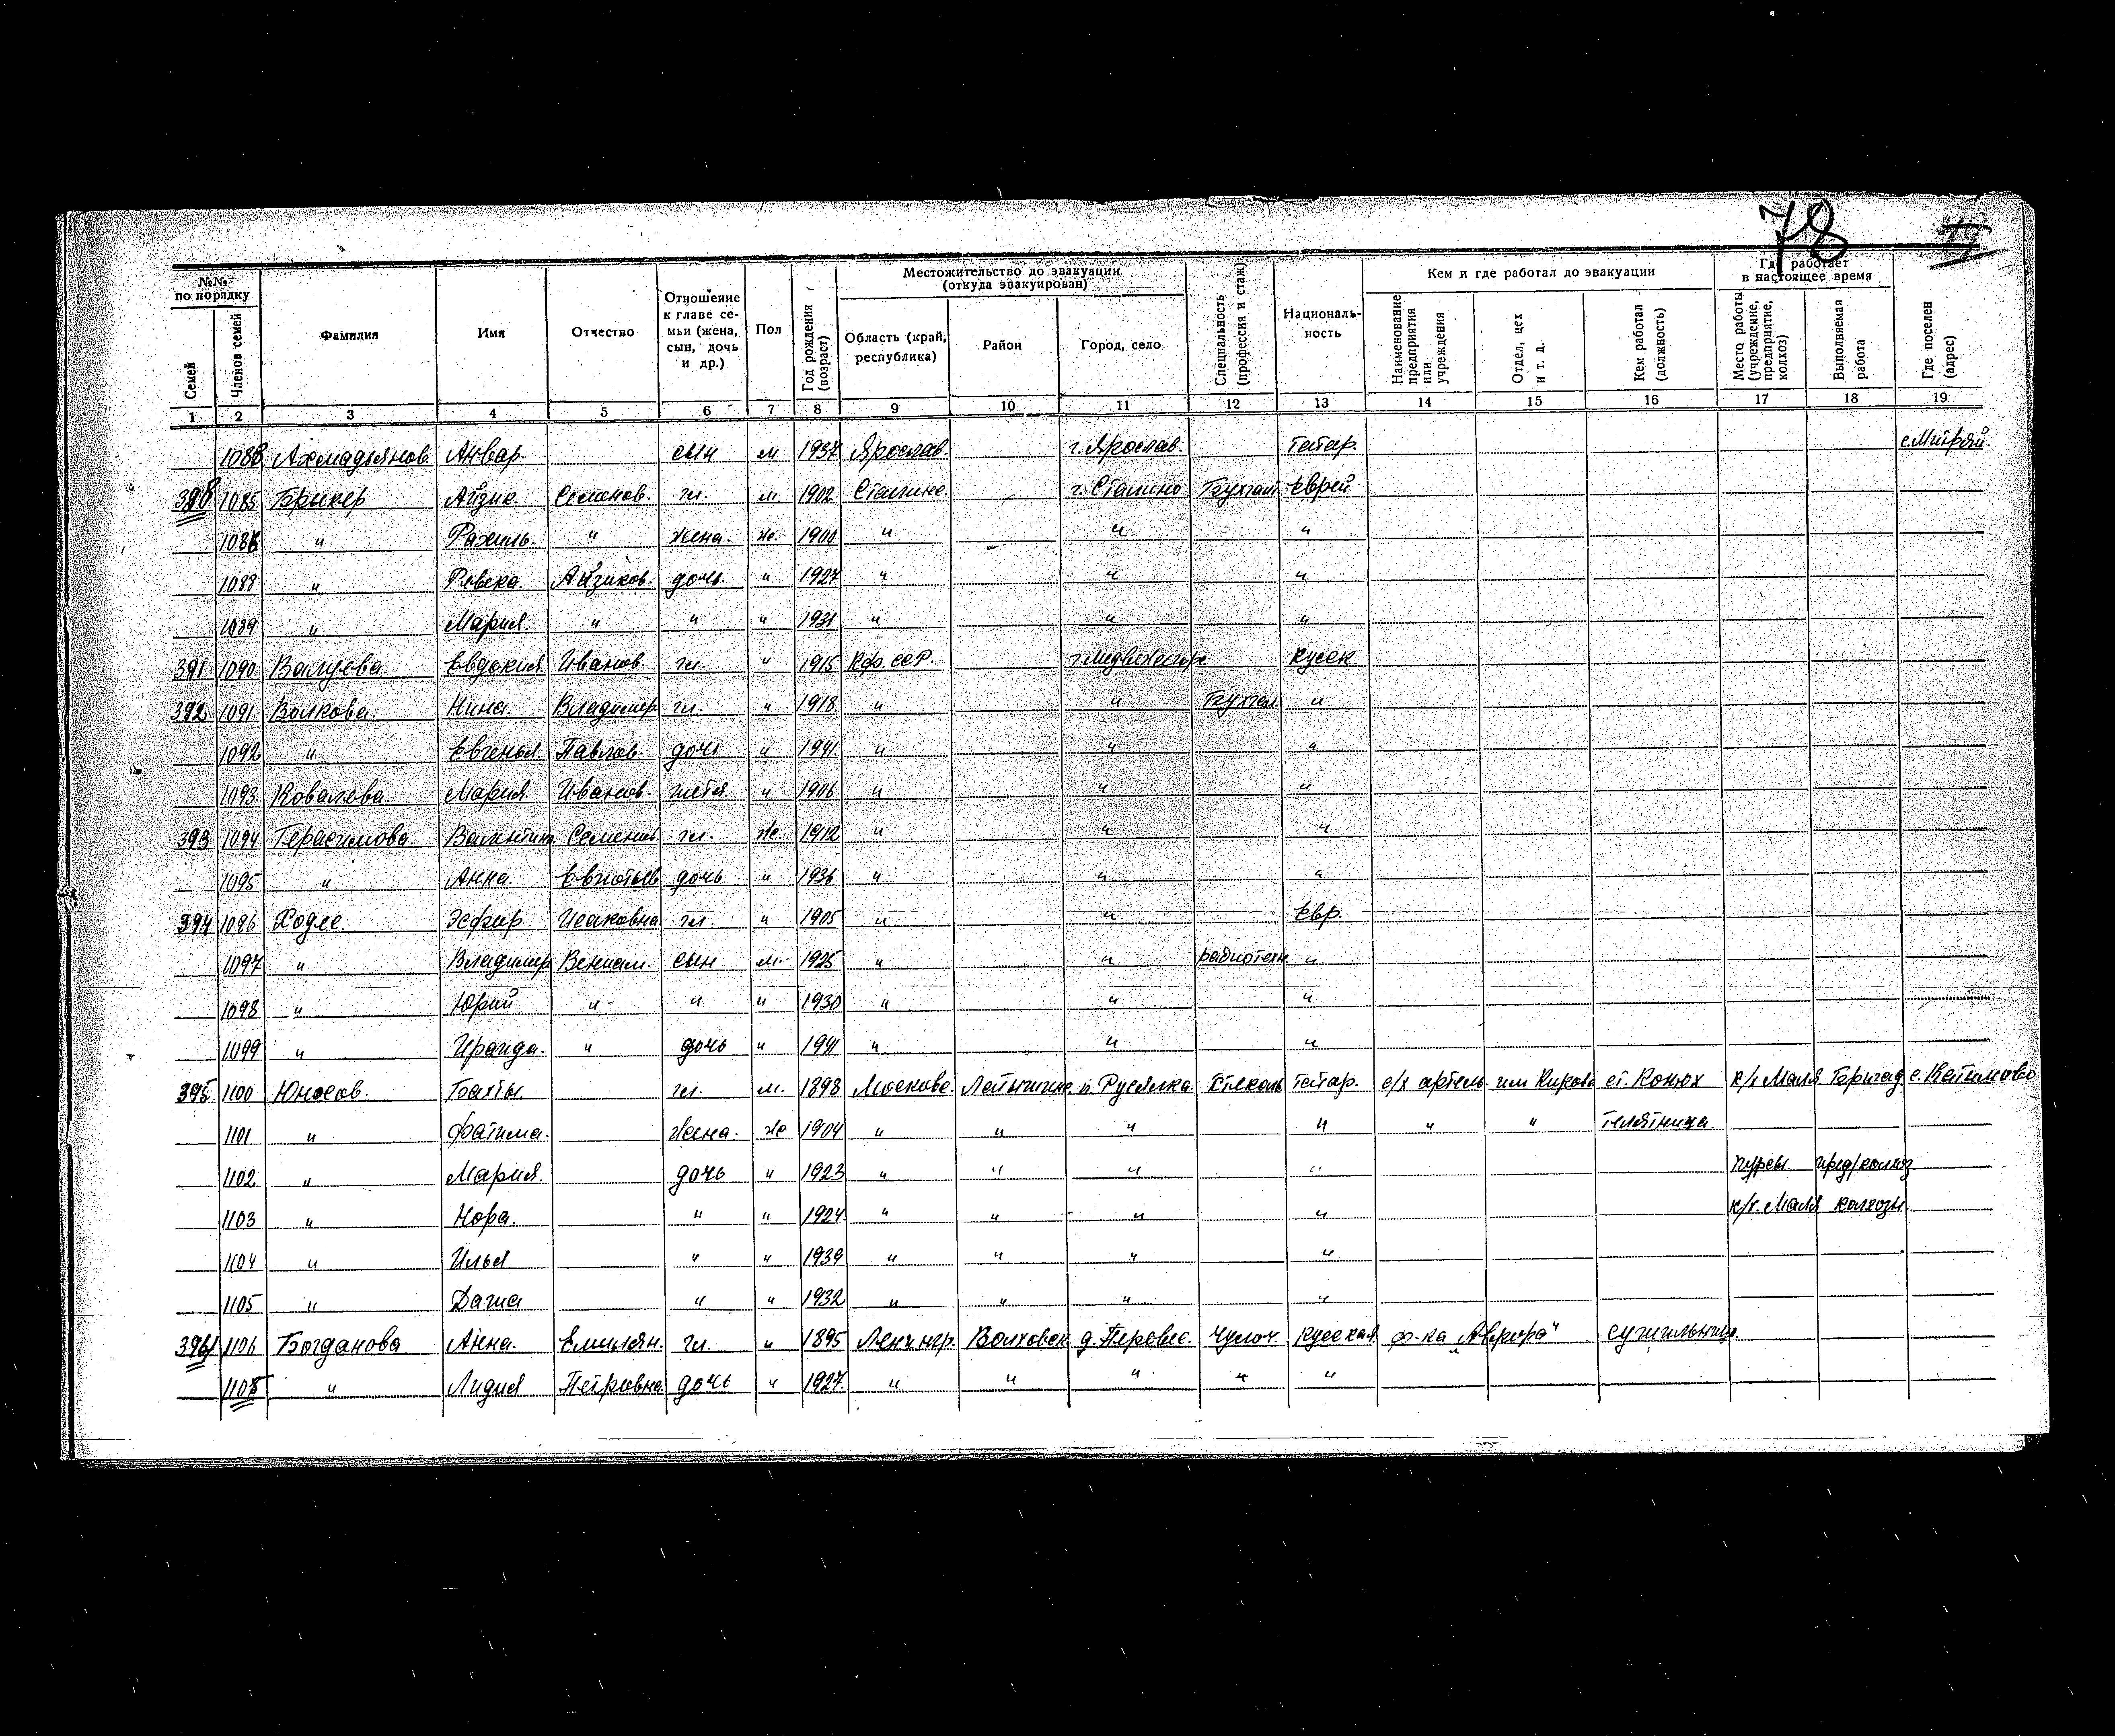 78
№№ по порядку
Семей
Членов семей
Фамилия
Имя
Отчество
Отношение к главе семьи (жена, сын, дочь и др.)
Пол
Год рождения (возраст)
Местожительство до эвакуации (откуда эвакуирован)
Область (край, республика)
Район
Город, село
Специальность (профессия и стаж)
Националь-ность
Кем и где работал до эвакуации
Наименование предприятия или учреждения
Отдел, цех и т. д.
Кем работал (должность)
Где работает в настоящее время
Место работы (учреждение, предприятие, колхоз)
Выполняемая работа
Где поселен (адрес)
1 2 3 4 5 6 7 8 9 10 11 12 13 14 15 16 17 18 19
Ахмадьянов. Анвар. сын м 1937 Ярослав. г. Ярослав. Татар.
1085 Брикер Айзик Семенов. гл. м 1902 Сталине. г. Сталино Еврей
" Рахиль. " жена. ж. 1900 " " "
1088 " Ревека. Айзиков. дочь. " 1927 " " "
1089 " Мария. " " " 1931 " " "
391 1090 Валуева. Евдокия Иванов. гл. " 1915 Кф. ССР.
392 1091 Волкова. Нина. Владимир гл. " 1918 " " Бухгал "
1092 " Евгенья. Павлов. дочь " 1941 " " "
1093 Ковалева. Мария. Иванов. " 1906 " " "
393 1094 Герасимова. Валентина Семенов. гл. ж. 1912 " " "
1095 " Анна. дочь " 1936 " " "
394 Эсфир Исаковна гл. " 1905 " " Евр.
1097 " Владимир Вениам. сын м. 1925 " " радиотехн "
1098 " Юрий " " " 1930 " " "
1099 " Ираида. " дочь " 1941 " " "
395 1100 Юносов. Бахты. гл. м. 1898 Московс. Татар. с/х артель им Кирова ст. Конюх к/х Маля Бригад с. Катимово
1101 " Фатима. жена. ж 1904 " " " " " " телятница.
1102 " Мария. дочь " 1923 " " " "
1103 " Нора. " " 1924 " " " " к/х. Маля колхозн.
1104 " Илья " " 1939 " " " "
1105 " Даша " " 1932 " " " "
396 1106 Богданова Анна. Емильян. гл. " 1895 Ленингр. Волховск Чулоч. русская ф-ка „Аврора" сушильница.
" Лидия Петровна дочь " 1927. " " " " "